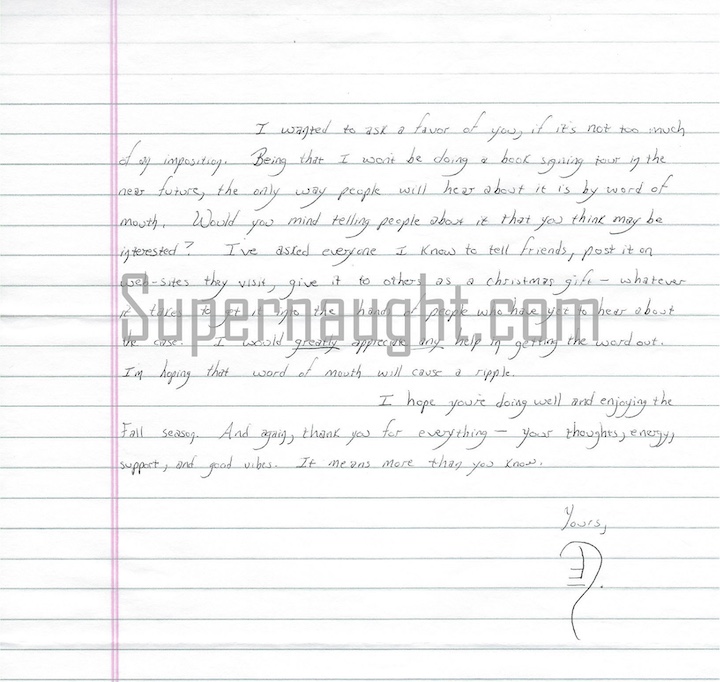 I wanted to ask a favor of you, if it's not too much
of an imposition. Being that I won't be doing a book signing tour in the
near future, the only way people will hear about it is by word of
mouth. Would you mind telling people about it that you think may be
interested? I've asked everyone I know to tell friends, post it on
web-sites they visit, give it to others as a christmas gift - whatever
it takes to get it into the hands of people who have yet to hear about
the case. I would greatly appreciate any help in getting the word out.
I'm hoping that word of mouth will cause a ripple.
I hope you're doing well and enjoying the
Fall season. And again, thank you for everything - your thoughts, energy,
support, and good vibes. It means more than you know.
Yours,
Supernaught.com